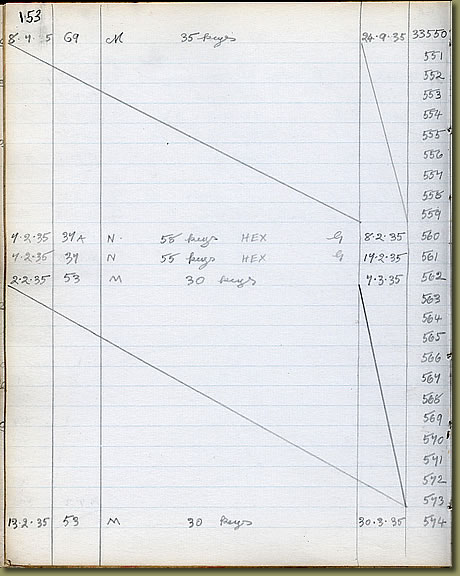 153
8.7.5 69 M 35 keys 24.9.35 33550
551
552
553
554
555
556
557
558
559
7.2.35 37A N. 55 keys HEX G 8.2.35 560
7.2.35 37 N 55 keys HEX G 17.2.35 561
2.2.35 53 M 30 keys 7.3.35 562
563
564
565
566
567
568
569
570
571
572
573
13.2.35 53 M 30 keys 30.3.35 574